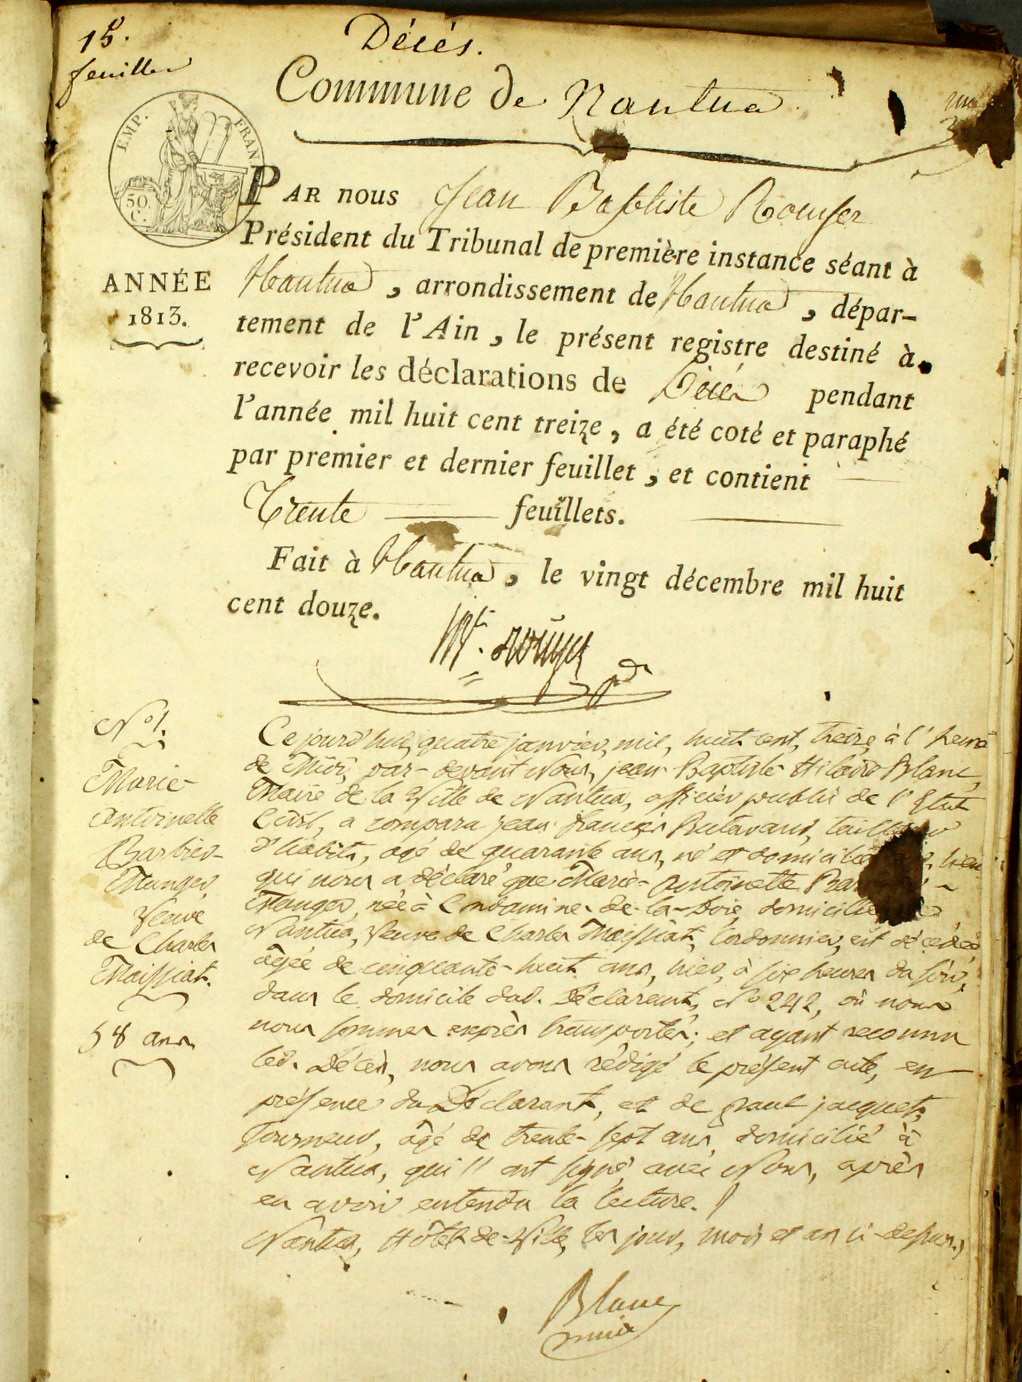 15.
feuillet
Décés.
Commune de Nantua
EMP. FRAN
50
C.
ANNÉE
1813.
PAR nous Jean Baptiste Rouyer
Président du Tribunal de première instance séant à
Nantua, arrondissement de Nantua, dépar-
tement de l'Ain, le présent registre destiné à
recevoir les déclarations de Décés pendant
l'année mil huit cent treize, a été coté et paraphé
par premier et dernier feuillet, et contient
Trente feuillets.
Fait à Nantua, le vingt décembre mil huit
cent douze.
N.º 1.
Marie
Antoinette
Barbier
Manger
Veuve
de Charles
Maissiat.
58 ans
Ce jourd'hui, quatre janvier, mil, huit cent, treize à l'heure
de Midi, par-devant Nous, jean Baptiste Hilaire Blanc,
Maire de la Ville de Nantua, officier public de l'Etat
Civil, a comparu jean françois Butavand, tailleur
d'habits, agé de quarante ans, né et domicilié lieu
qui nous a déclaré que Marie-Antoinette Bar
Manger, née à Condamine-de-la-Doie, domiciliée
Nantua, Veuve de Charles Maissiat, Cordonnier, est décédée
âgée de cinquante-huit ans, hier, à six heures du soir,
dans le domicile dud. Déclarant, Nº 242, où nous
nous sommes exprès transportés; et ayant reconnu
led. Décès, nous avons rédigé le présent acte, en
présence du Déclarant, et de paul jacquet,
Tourneur, âgé de trente-sept ans, domicilié à
Nantua, qui ont signé avec Nous, après
en avoir entendu la lecture.
Nantua, Hôtel-de-Ville, les jour, mois et an ci-dessus.
Blanc
maire